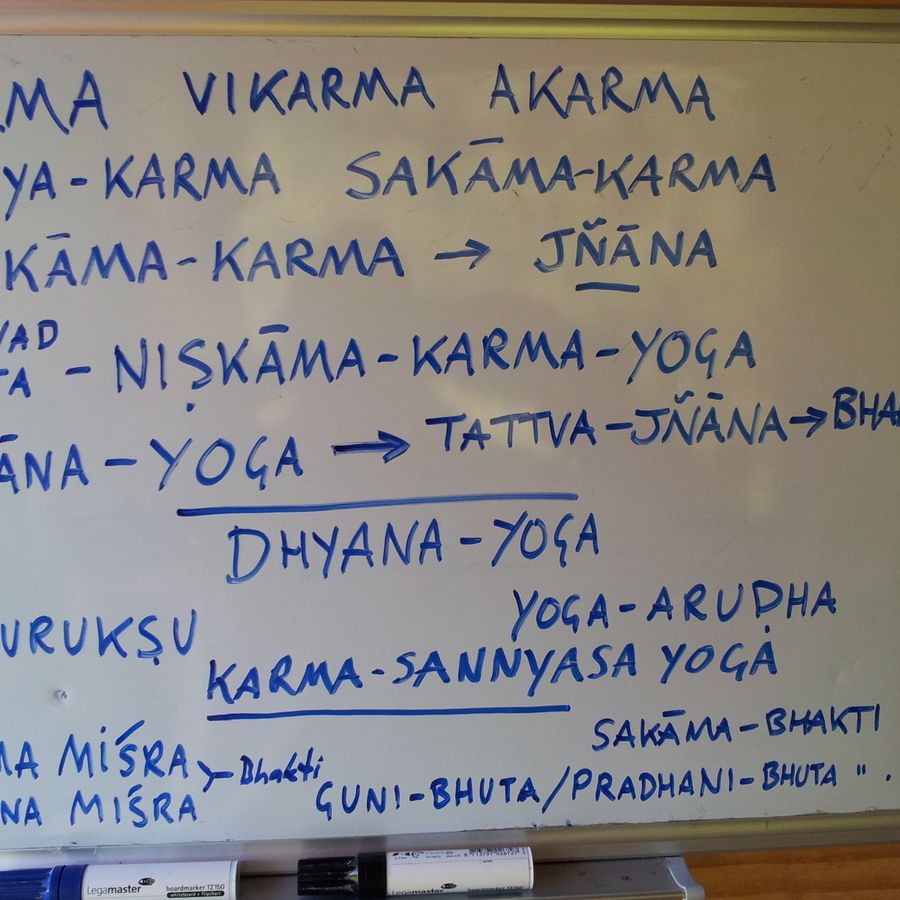 RMA VIKARMA AKARMA
YA-KARMA SAKĀMA-KARMA
KĀMA-KARMA → JÑĀNA
VAD
TA - NIṢKĀMA-KARMA-YOGA
ĀNA-YOGA → TATTVA-JÑĀNA → BHA
DHYANA-YOGA
URUKṢU
YOGA-ARUḌHA
KARMA-SANNYASA YOGA
SAKĀMA-BHAKTI
MA MIŚRA
NA MIŚRA
Bhakti
GUNI-BHUTA/PRADHANI-BHUTA " .
Legamaster boardmarker TZ150
whiteboard + flipchart
Legamaster boardmarker TZ150